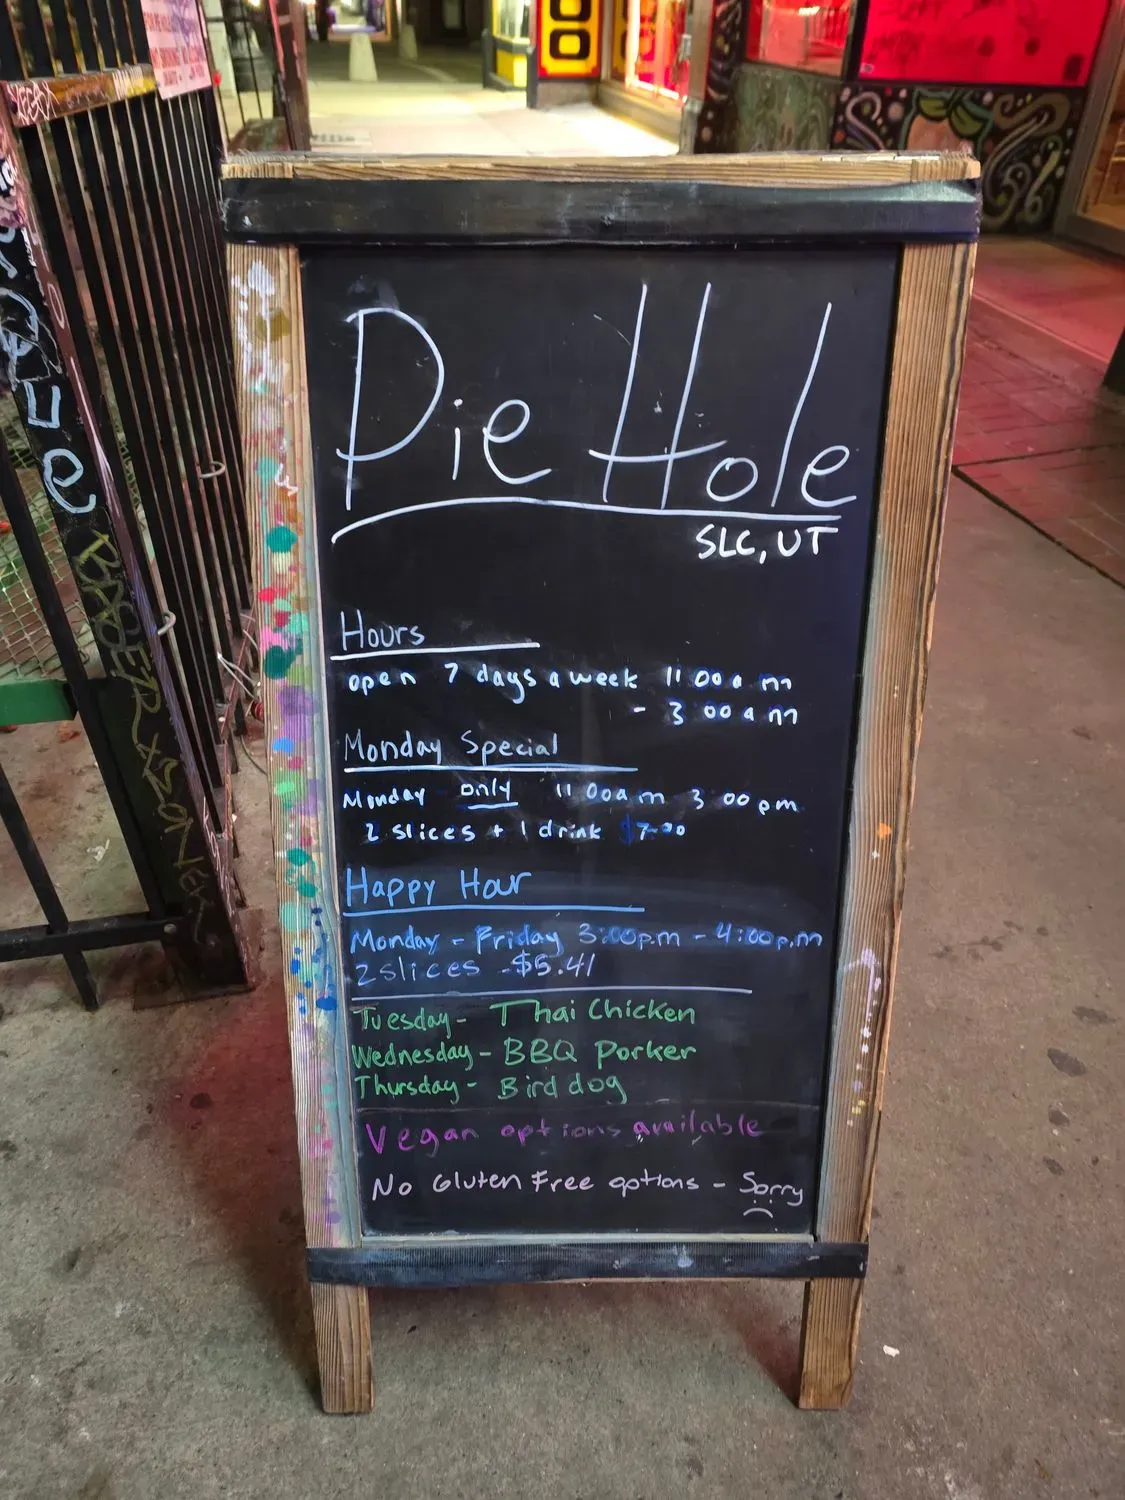 Pie Hole
SLC, UT
Hours
open 7 days a week 11:00am
- 3:00am
Monday Special
Monday only 11:00am 3:00pm
2 slices + 1 drink $7.00
Happy Hour
Monday - Friday 3:00p.m - 4:00p.m
2 slices - $5.41
Tuesday - Thai Chicken
Wednesday - BBQ Porker
Thursday - Bird dog
Vegan options available
No Gluten Free options - Sorry